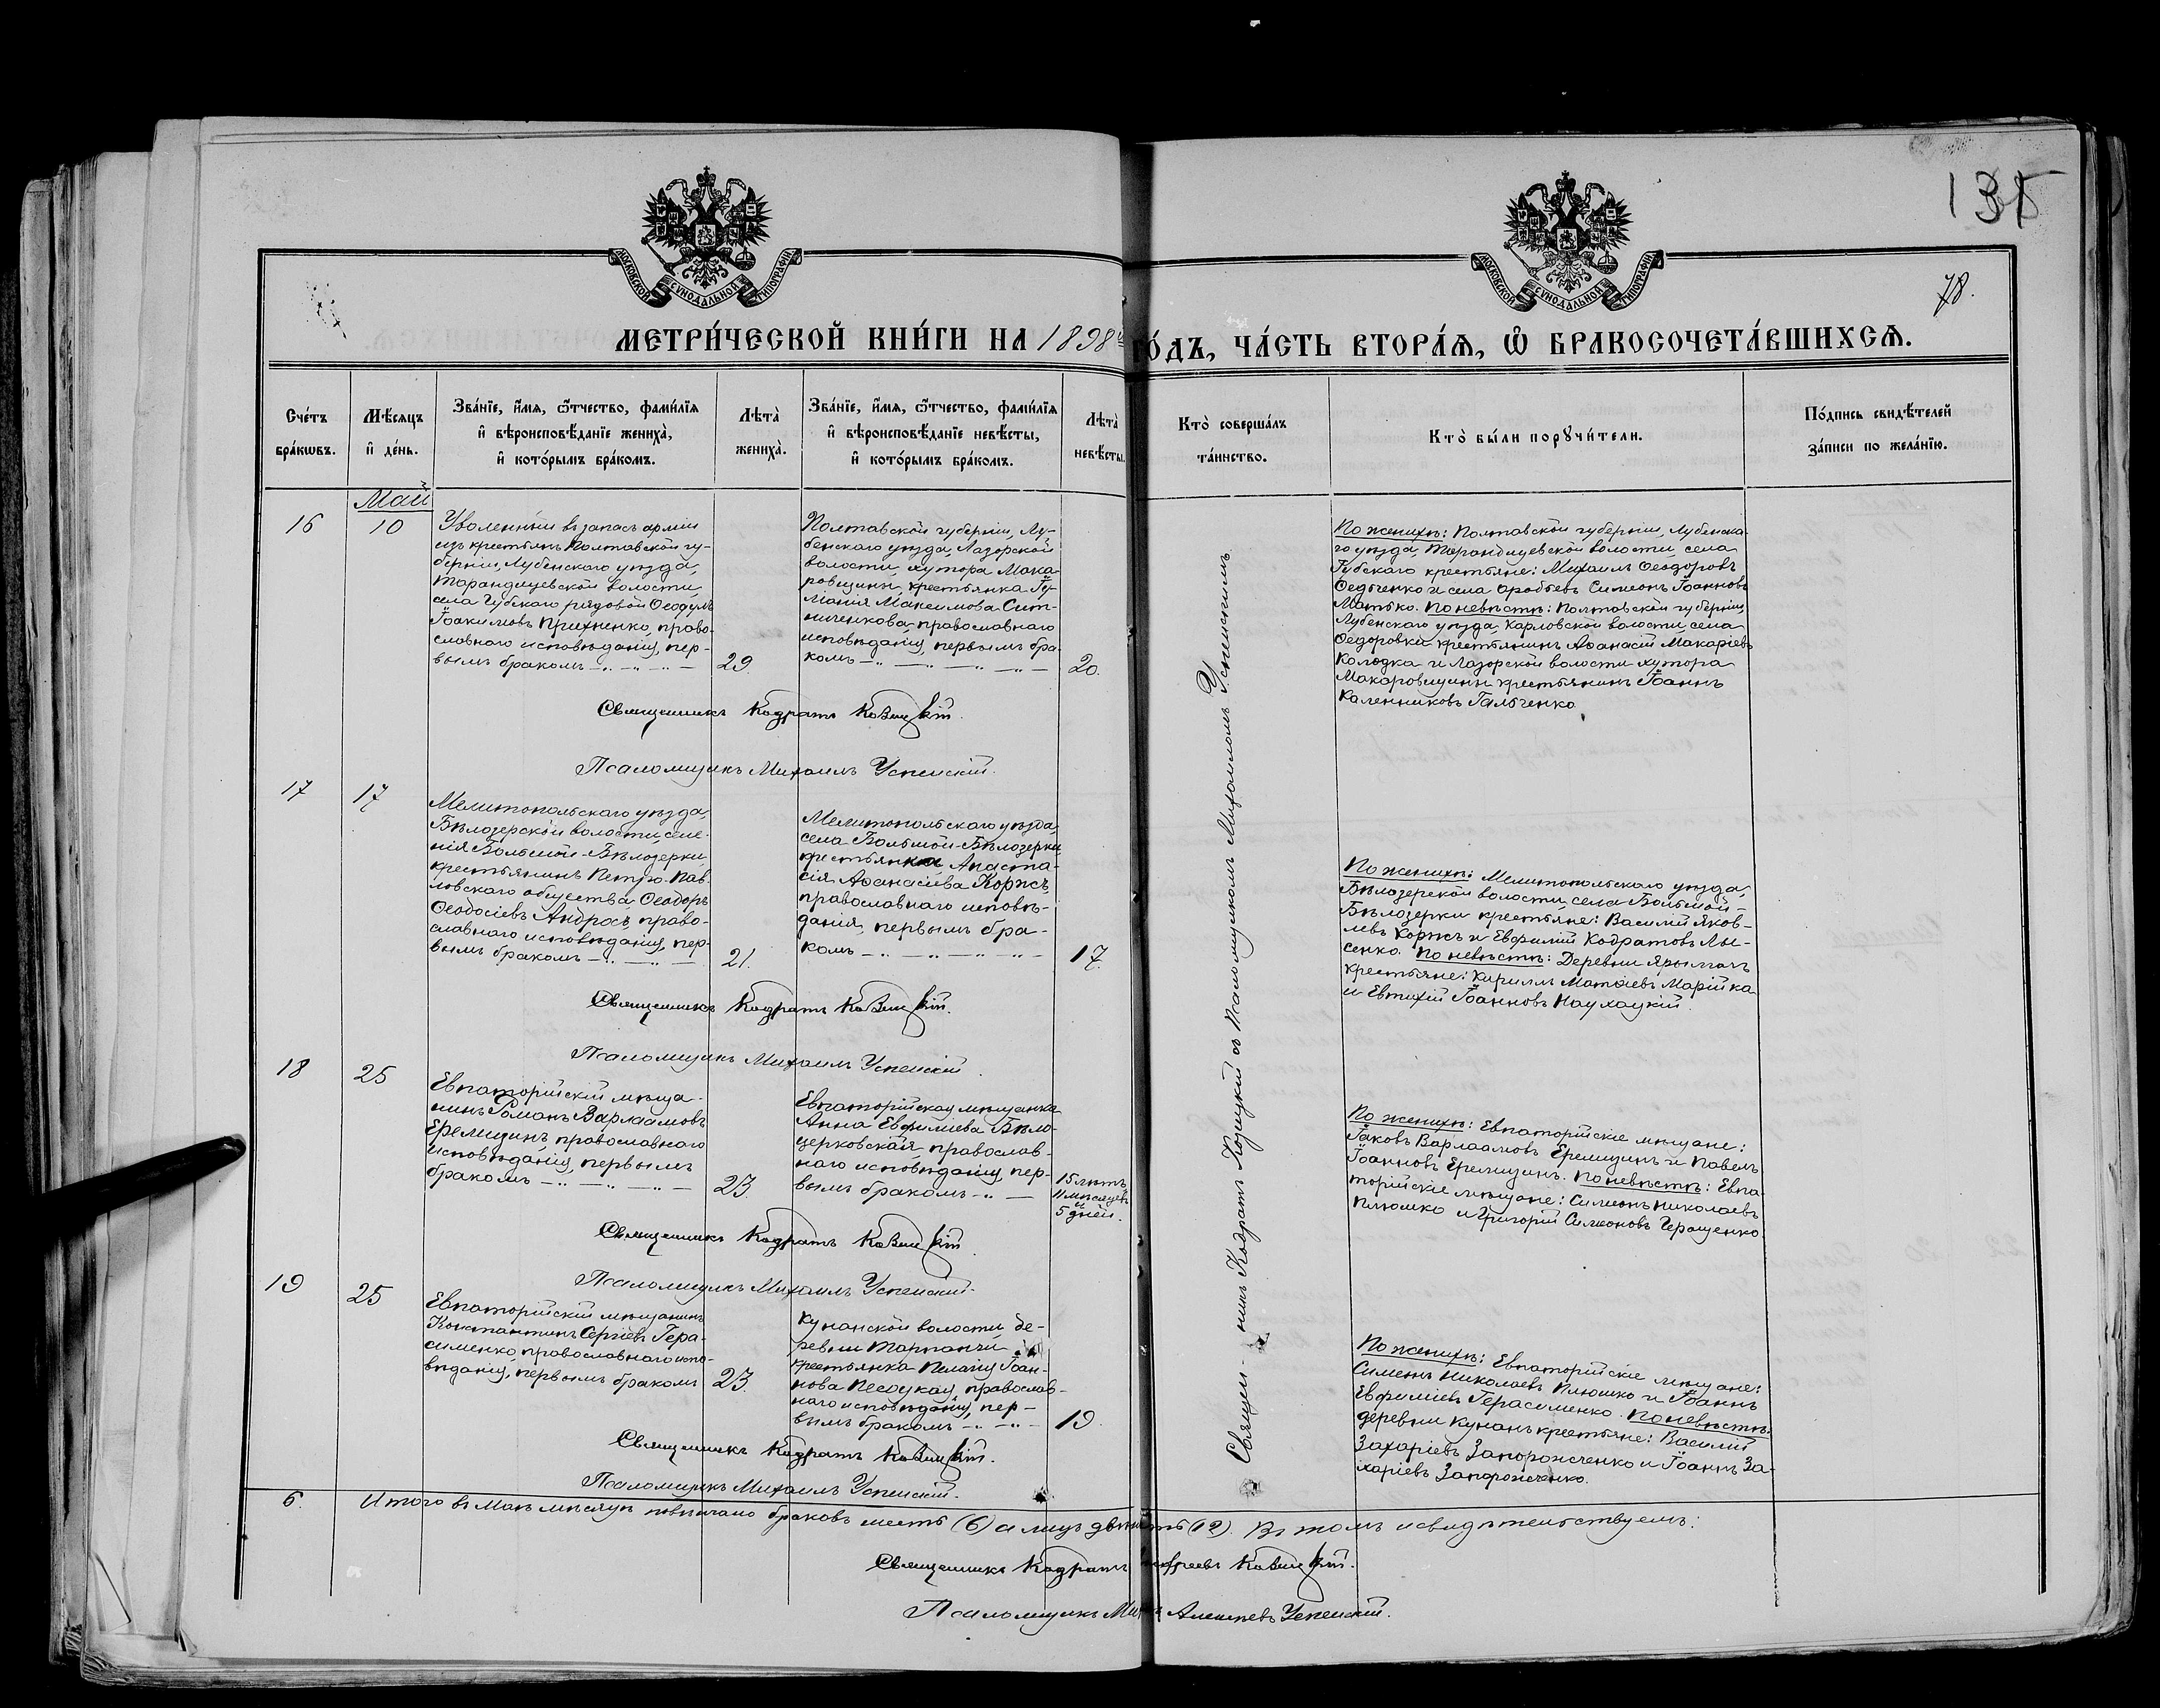 135
МОСКОВСКОЙ СѴНОДАЛЬНОЙ ТИПОГРАФІИ
МОСКОВСКОЙ СѴНОДАЛЬНОЙ ТИПОГРАФІИ
78.
МЕТРИ́ЧЕСКОЙ КНИ́ГИ НА 1898й ГО́ДЪ, ЧА́СТЬ ВТОРА́Ѧ, Ѽ БРАКОСОЧЕТА́ВШИХСѦ.
Сче́тъ
бра́кѡвъ.
Мѣ́сяцъ
и҆ де́нь.
Зва́нїе, и҆́мѧ, ѻ҆́тчество, фами́лїѧ
и҆ вѣроисповѣ́данїе жениха̀,
и҆ кото́рымъ бра́комъ.
Лѣта̀
жениха̀.
Зва́нїе, и҆́мѧ, ѻ҆́тчество, фами́лїѧ
и҆ вѣроисповѣ́данїе невѣ́сты,
и҆ кото́рымъ бра́комъ.
Лѣта̀
невѣ́сты.
Кто̀ соверша́лъ
та́инство.
Кто̀ бы́ли порꙋчи́тели.
По́дпись свидѣ́телей
за́писи по жела́нїю.
Май
16
10
Уволенный въ запасъ арміи
изъ крестьянъ Полтавской гу-
берніи, Лубенскаго уѣзда,
Тарандинцевской волости,
села Губскаго рядовой Ѳеодулъ
Іоакимовъ Прихненко, право-
славнаго исповѣданія, пер-
вымъ бракомъ
29.
Полтавской губерніи, Лу-
бенскаго уѣзда, Лазорской
волости хутора Мака-
ровщины, крестьянка Іу-
ліанія Максимова Сит-
никова православнаго
исповѣданія, первымъ бра-
комъ
20.
По женихѣ: Полтавской губерніи, Лубенска-
го уѣзда, Тарандинцевской волости, села
Губскаго крестьяне: Михаилъ Ѳеодоровъ
Федченко и села Симеонъ Іоанновъ
Матько. По невѣстѣ: Полтавской губерніи,
Лубенскаго уѣзда, Карловской волости, села
Ѳедоровки крестьянинъ Аѳанасій Макаріевъ
Колодка и Лазорской волости хутора
Макаровщины крестьянинъ Іоаннъ
Каленниковъ Гальченко.
Священникъ Кодратъ Козицкій.
Псаломщикъ Михаилъ Успенскій.
17
17
Мелитопольскаго уѣзда,
Бѣлозерской волости, селе-
нія Большой-Бѣлозерки
крестьянинъ Петро-Пав-
ловскаго общества Ѳеодоръ
Ѳеодосіевъ Андросъ, право-
славнаго исповѣданія, пер-
вымъ бракомъ
21.
Мелитопольскаго уѣзда,
села Большой-Бѣлозерки
крестьянка Анаста-
сія Аѳанасіева Коржъ
православнаго исповѣ-
данія, первымъ бра-
комъ
17.
По женихѣ: Мелитопольскаго уѣзда,
Бѣлозерской волости, села Большой-
Бѣлозерки крестьяне: Василій Яков-
левъ Коржъ и Евфимій Кодратовъ Лы-
сенко. По невѣстѣ: Деревни Ярылгачъ
крестьяне: Кириллъ Матѳіевъ Марійка
и Евтихій Іоанновъ Наухацкій.
Священникъ Кодратъ Козицкій.
Псаломщикъ Михаилъ Успенскій.
18
25
Евпаторійскій мѣща-
нинъ Романъ Варлаамовъ
Еремизинъ, православнаго
исповѣданія, первымъ
бракомъ
23.
Евпаторійская мѣщанка
Анна Евфиміева Бѣло-
церковская, православ-
наго исповѣданія, пер-
вымъ бракомъ
15 лѣтъ
11 мѣсяцевъ
и
5 дней.
По женихѣ: Евпаторійскіе мѣщане:
Іаковъ Варлаамовъ Еремизинъ и Павелъ
Іоанновъ Еремизинъ. По невѣстѣ: Евпа-
торійскіе мѣщане: Симеонъ Николаевъ
Плюшко и Григорій Симеоновъ Геращенко.
Священникъ Кодратъ Козицкій.
Псаломщикъ Михаилъ Успенскій.
19
25
Евпаторійскій мѣщанинъ
Константинъ Сергіевъ Гера-
сименко, православнаго испо-
вѣданія, первымъ бракомъ
23.
Кунанской волости, де-
ревни Тарпанчи
крестьянка Пелагія Іоан-
нова Песоцкая, православ-
наго исповѣданія, пер-
вымъ бракомъ
19.
По женихѣ: Евпаторійскіе мѣщане:
Симеонъ Николаевъ Плюшко и Іоаннъ
Евфиміевъ Герасименко. По невѣстѣ:
деревни Кунанъ крестьяне: Василій
Захаріевъ Запорожченко и Іоаннъ За-
харіевъ Запорожченко.
Священникъ Кодратъ Козицкій.
Псаломщикъ Михаилъ Успенскій.
Священ-никъ Кодратъ Козицкій съ псаломщикомъ Михаиломъ Успенскимъ
6. Итого въ Маѣ мѣсяцѣ повѣнчано браковъ шесть (6) а лицъ двѣнадцать (12). Въ томъ и свидѣтельствуемъ:
Священникъ Кодратъ Андреевъ Козицкій.
Псаломщикъ Михаилъ Алексѣевъ Успенскій.